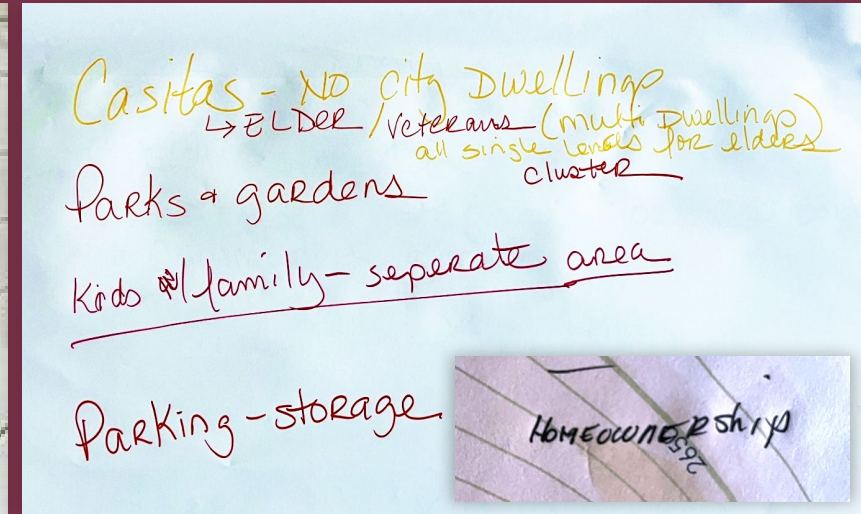 Casitas - NO city Dwellings
↳ ELDER / Veterans (multi Dwellings)
all single levels for elders
cluster
Parks & gardens
Kids w/ family - seperate area
Parking - storage
HOMEOWNERShip
2659